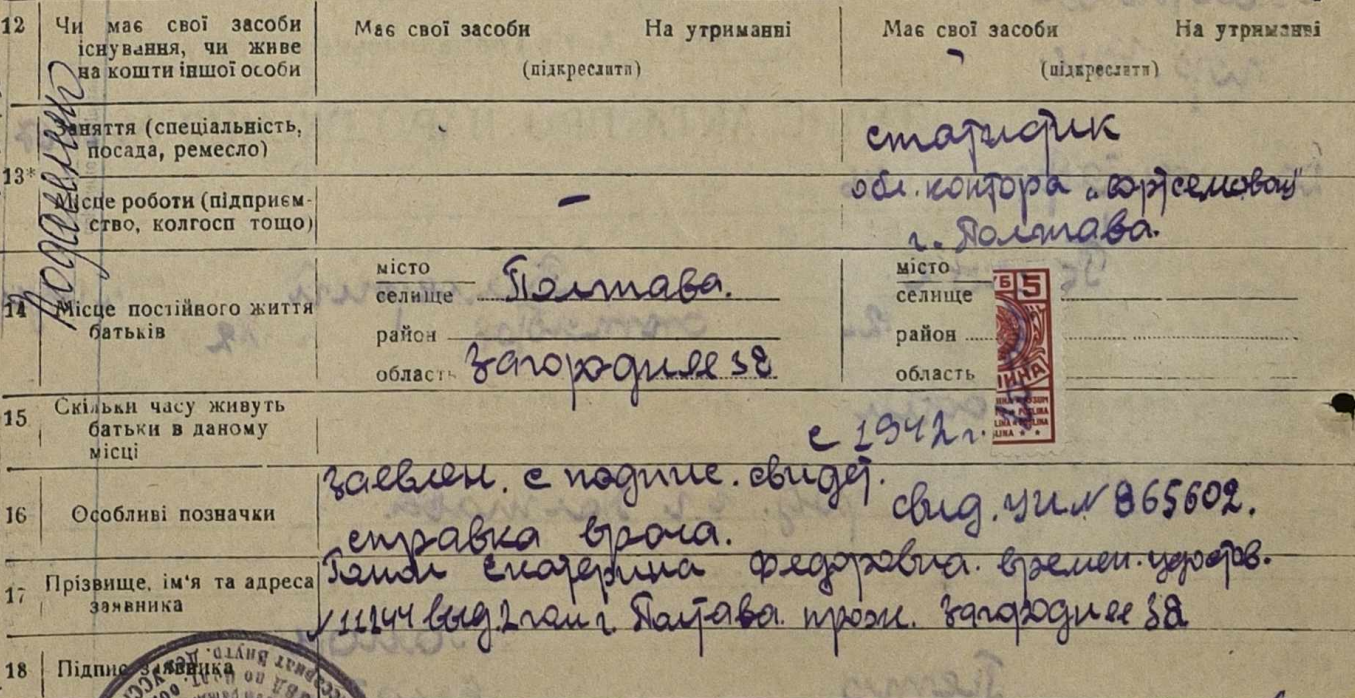 12 Чи має свої засоби існування, чи живе на кошти іншої особи
Має свої засоби На утриманні
(підкреслити)
Має свої засоби На утриманні
(підкреслити)
13* Заняття (спеціальність, посада, ремесло)
статистик
Місце роботи (підприємство, колгосп тощо)
–
обл. контора „сортсемовощ"
г. Полтава.
14 Місце постійного життя батьків
місто
селище Полтава.
район
область Загородняя 38
місто
селище
район
область
5
15 Скільки часу живуть батьки в даному місці
с 1942 г.
16 Особливі позначки
заевлен. с подпис. свидет.
справка врача.
свид. УИ № 865602.
17 Прізвище, ім'я та адреса заявника
Екатерина Федоровна. времен. удостов.
№ 11244 выд. 2 г. Полтава. прож. Загородняя 38
18 Підпис заявника